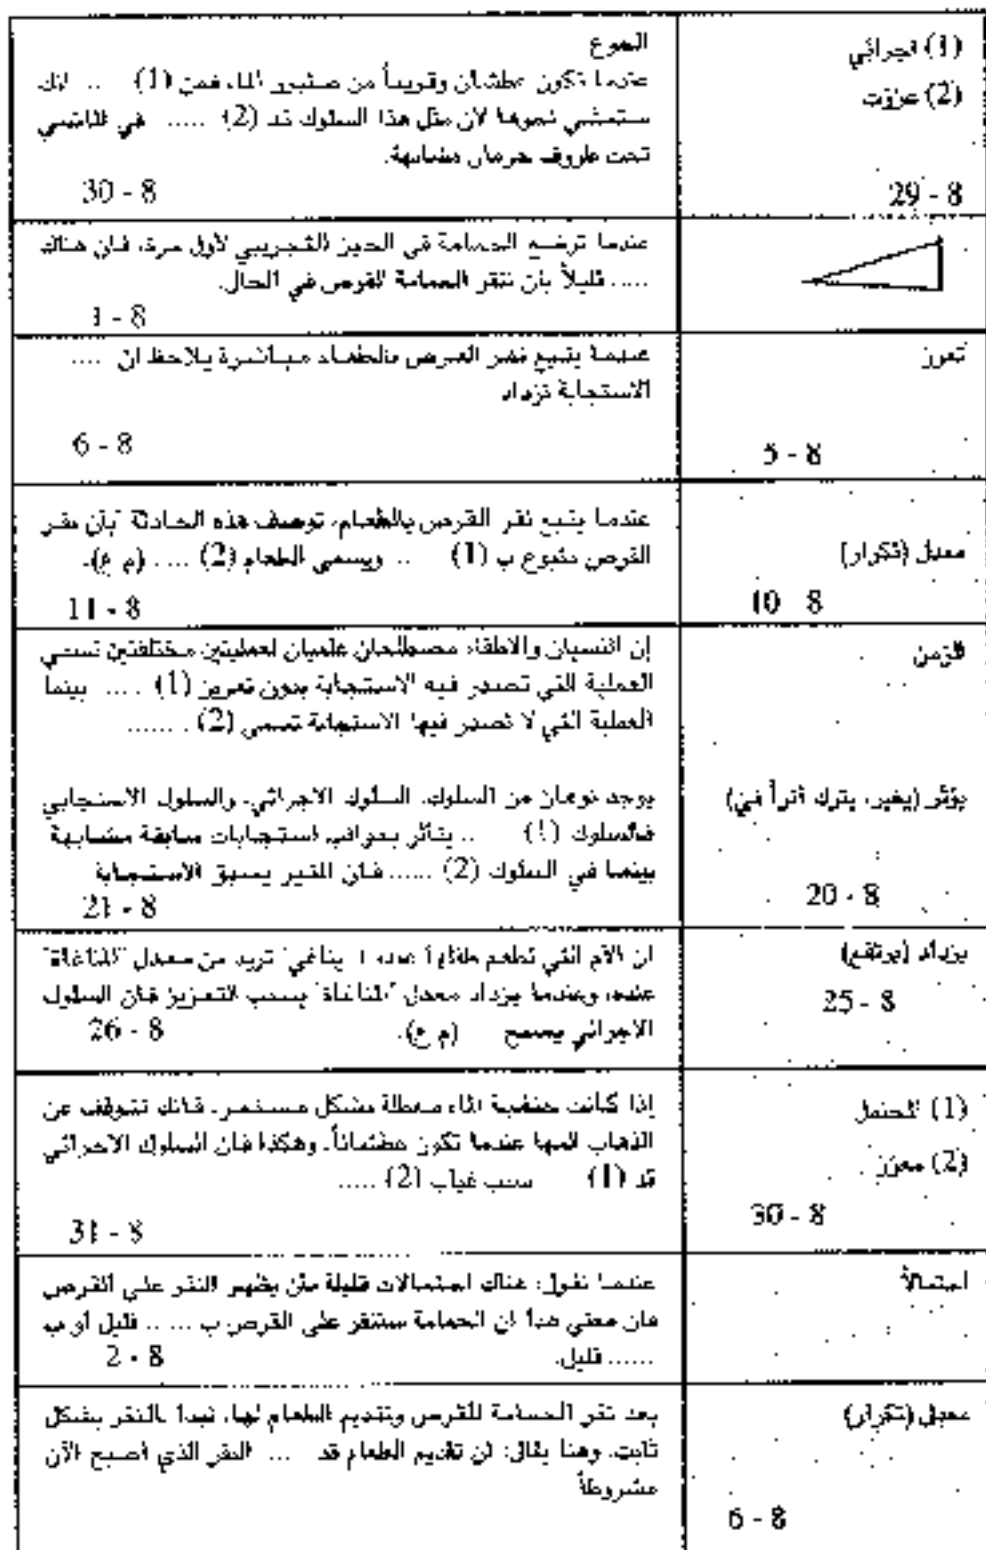 (1) اجرائي
(2) عززت
29 - 8
الموع
عندما تكون عطشان وقريباً من صنبور الماء فمن (1) .. انك
ستمشي نحوها لأن مثل هذا السلوك قد (2) ..... في الماضي
تحت ظروف حرمان مشابهة.
30 - 8
عندما توضع الحمامة في الحيز التجريبي لأول مرة، فان هناك
..... قليلاً بأن تنقر الحمامة القرص في الحال.
1 - 8
تعزز
5 - 8
عندما يتبع نقر القرص بالطعام مباشرة يلاحظ ان ....
الاستجابة تزداد
6 - 8
معدل (تكرار)
10 8
عندما يتبع نقر القرص بالطعام، توصف هذه الحادثة بأن نقر
القرص متبوع ب (1) .. ويسمى الطعام (2) .... (م ع).
11 - 8
الزمن
يؤثر (يغير، يترك أثراً في)
20 - 8
إن النسيان والاطفاء مصطلحان علميان لعمليتين مختلفتين تسمى
العملية التي تصدر فيه الاستجابة بدون تعزيز (1) .... بينما
العملية التي لا تصدر فيها الاستجابة تسمى (2) ........
يوجد نوعان من السلوك، السلوك الاجرائي، والسلوك الاستجابي
فالسلوك (1) .. يتأثر بعواقب استجابات سابقة مشابهة
بينما في السلوك (2) ...... فان المثير يسبق الاستجابة
21 - 8
يزداد (يرتفع)
25 - 8
ان الأم التي تطعم طفلها عندما يناغي تزيد من معدل "المناغاة"
عنده، وعندما يزداد معدل "المناغاة" بسبب التعزيز فان السلوك
الاجرائي يصبح (م ع).
26 - 8
(1) المحتمل
(2) معزز
30 - 8
إذا كانت حنفية الماء معطلة بشكل مستمر، فانك تتوقف عن
الذهاب اليها عندما تكون عطشاناً. وهكذا فان السلوك الاجرائي
قد (1) بسبب غياب (2) .....
31 - 8
احتمالاً
عندما نقول: هناك احتمالات قليلة بأن يظهر النقر على القرص
فان معنى هذا ان الحمامة ستنقر على القرص ب ...... قليل أو ب
...... قليل.
2 - 8
معدل (تكرار)
6 - 8
بعد نقر الحمامة للقرص وتقديم الطعام لها، تبدأ بالنقر بشكل
ثابت. وهنا يقال: ان تقديم الطعام قد ... النقر الذي أصبح الآن
مشروطاً